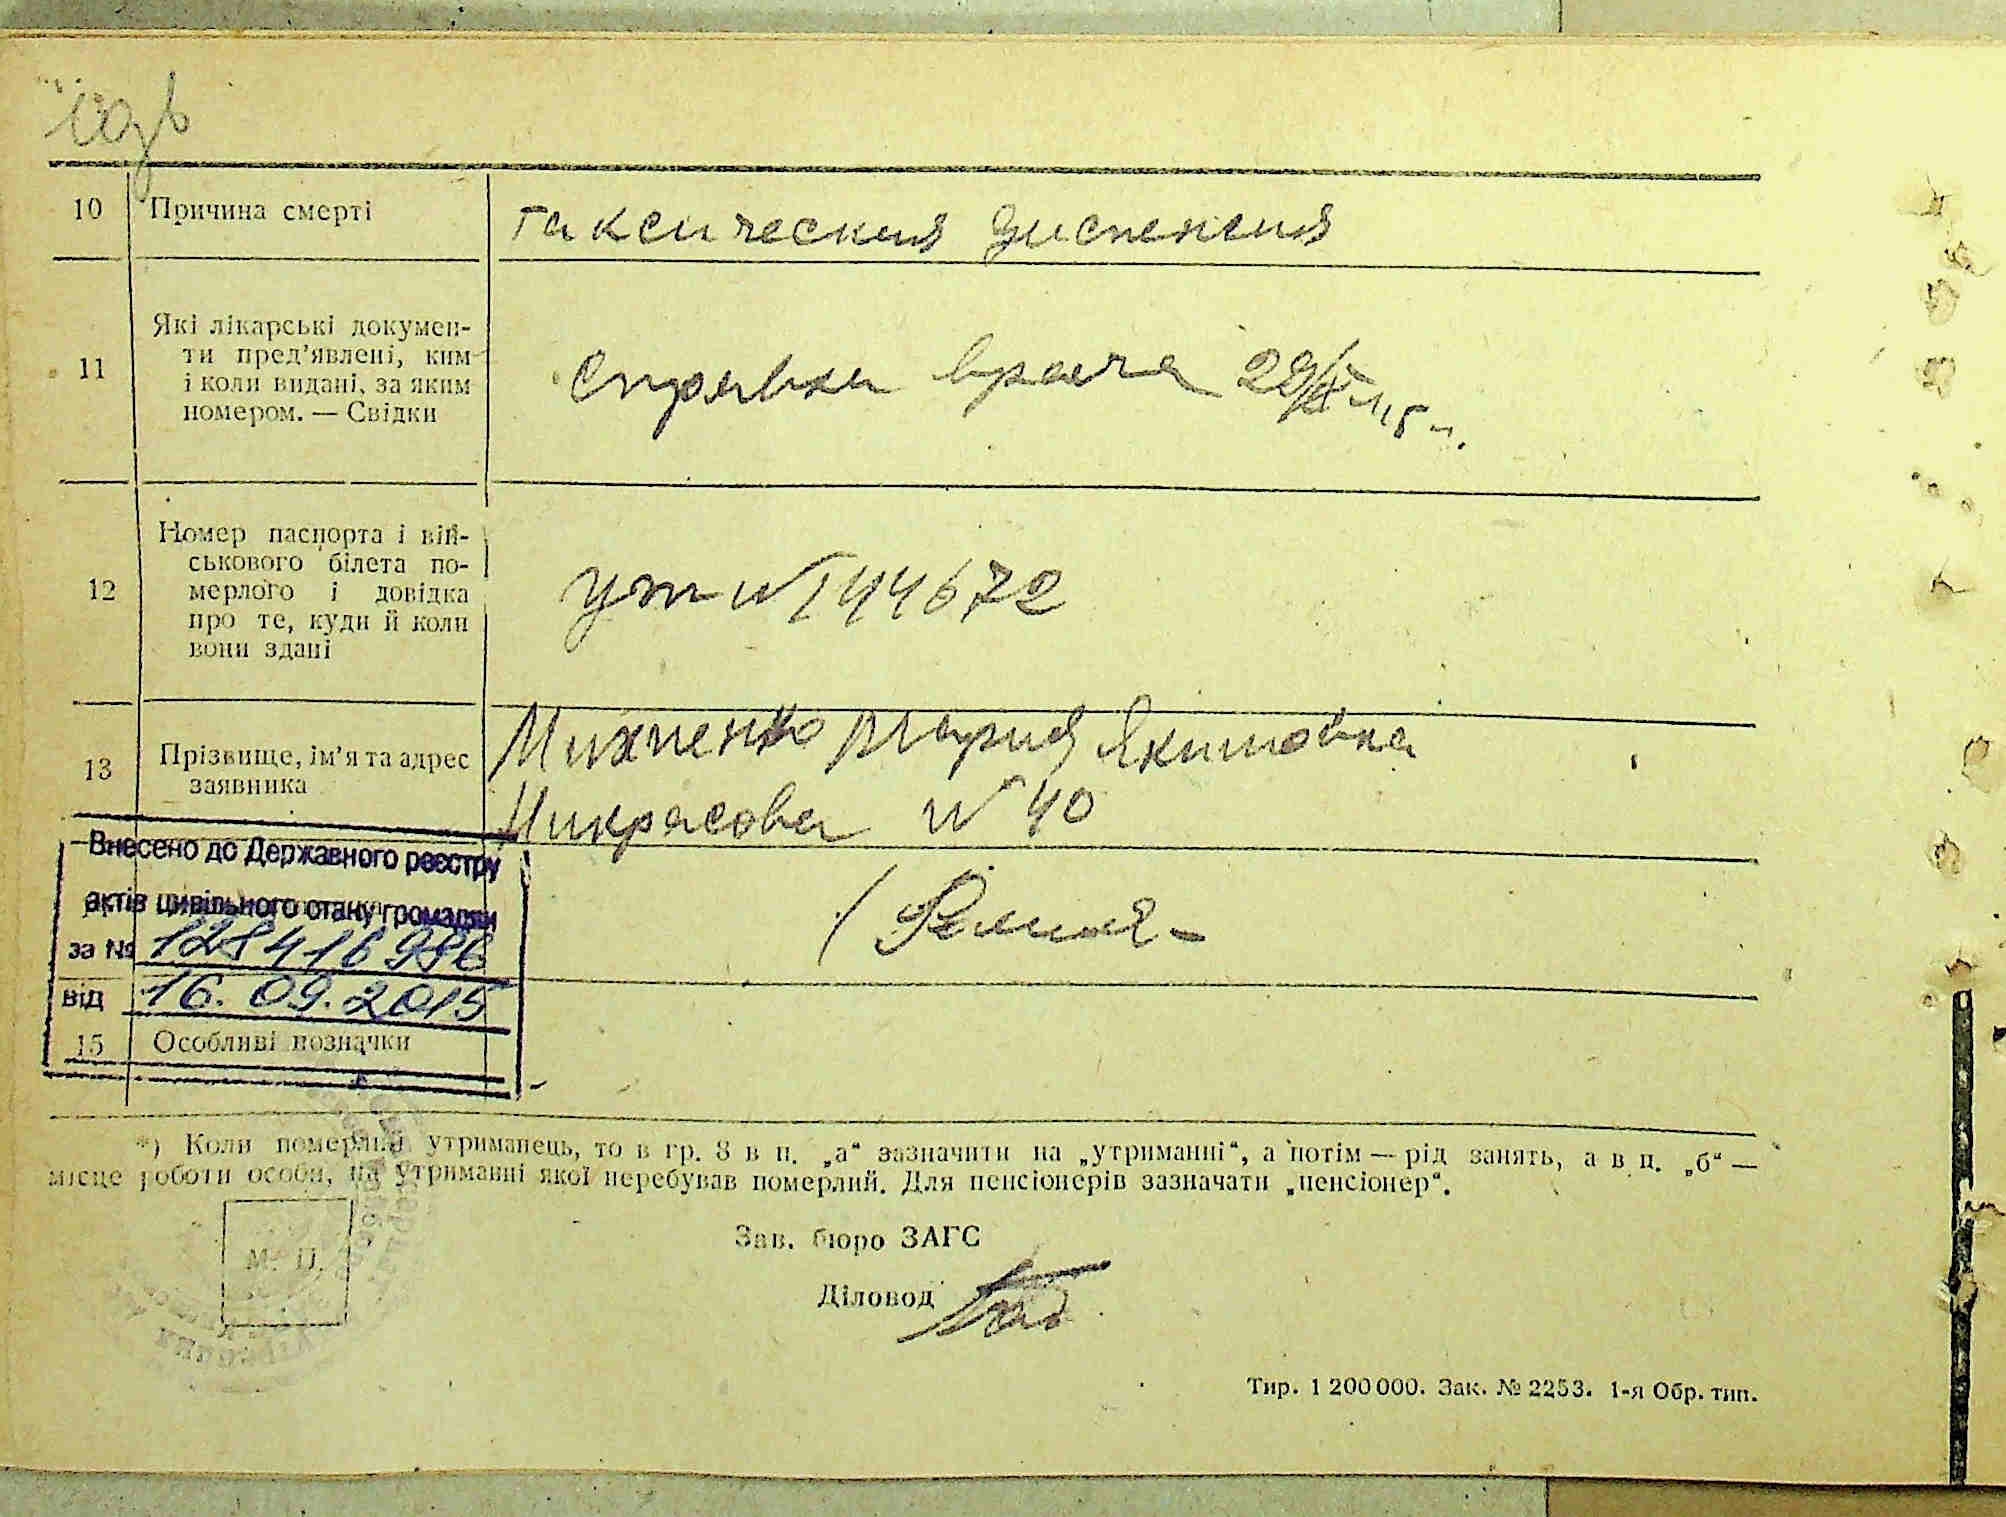 10 Причина смерті
таксическия диспепсия
11 Які лікарські докумен-
ти пред’явлені, ким
і коли видані, за яким
номером. — Свідки
Справка врача 29/IX-45 г.
12 Номер паспорта і вій-
ськового білета по-
мерлого і довідка
про те, куди й коли
вони здані
№ 144672
13 Прізвище, ім’я та адрес
заявника
Михненко Мария Якимовна
Никрасова № 40
Внесено до Державного реєстру
актів цивільного стану громадян
за № 128416996
від 16.09.2015
15 Особливі позначки
*) Коли померлий утриманець, то в гр. 8 в п. „а“ зазначити на „утриманні“, а потім — рід занять, а в п. „б“ —
місце роботи особи, на утриманні якої перебував померлий. Для пенсіонерів зазначати „пенсіонер“.
М. П.
Зав. бюро ЗАГС
Діловод
Тир. 1 200 000. Зак. № 2253. 1-я Обр. тип.